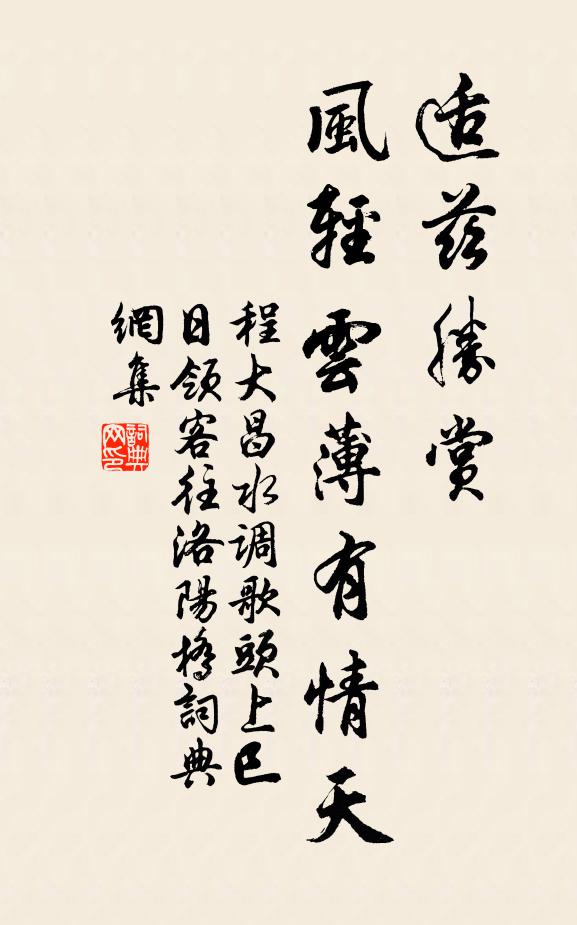 适茲勝賞
風輕雲薄有情天
程大昌水调歌頭上巳
日領客往洛陽橋詞典
網集
詞典
网印